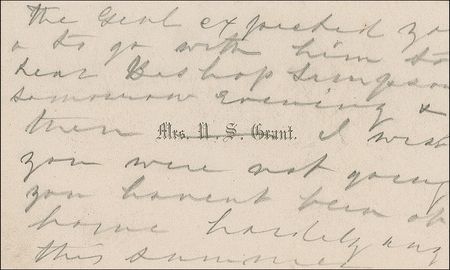 the Genl expected yo
u to go with him to
hear Bishop Simpson
tomorrow evening &
then Mrs. U. S. Grant. I wish
you were not going
you havent been at
home hardly any
this summer